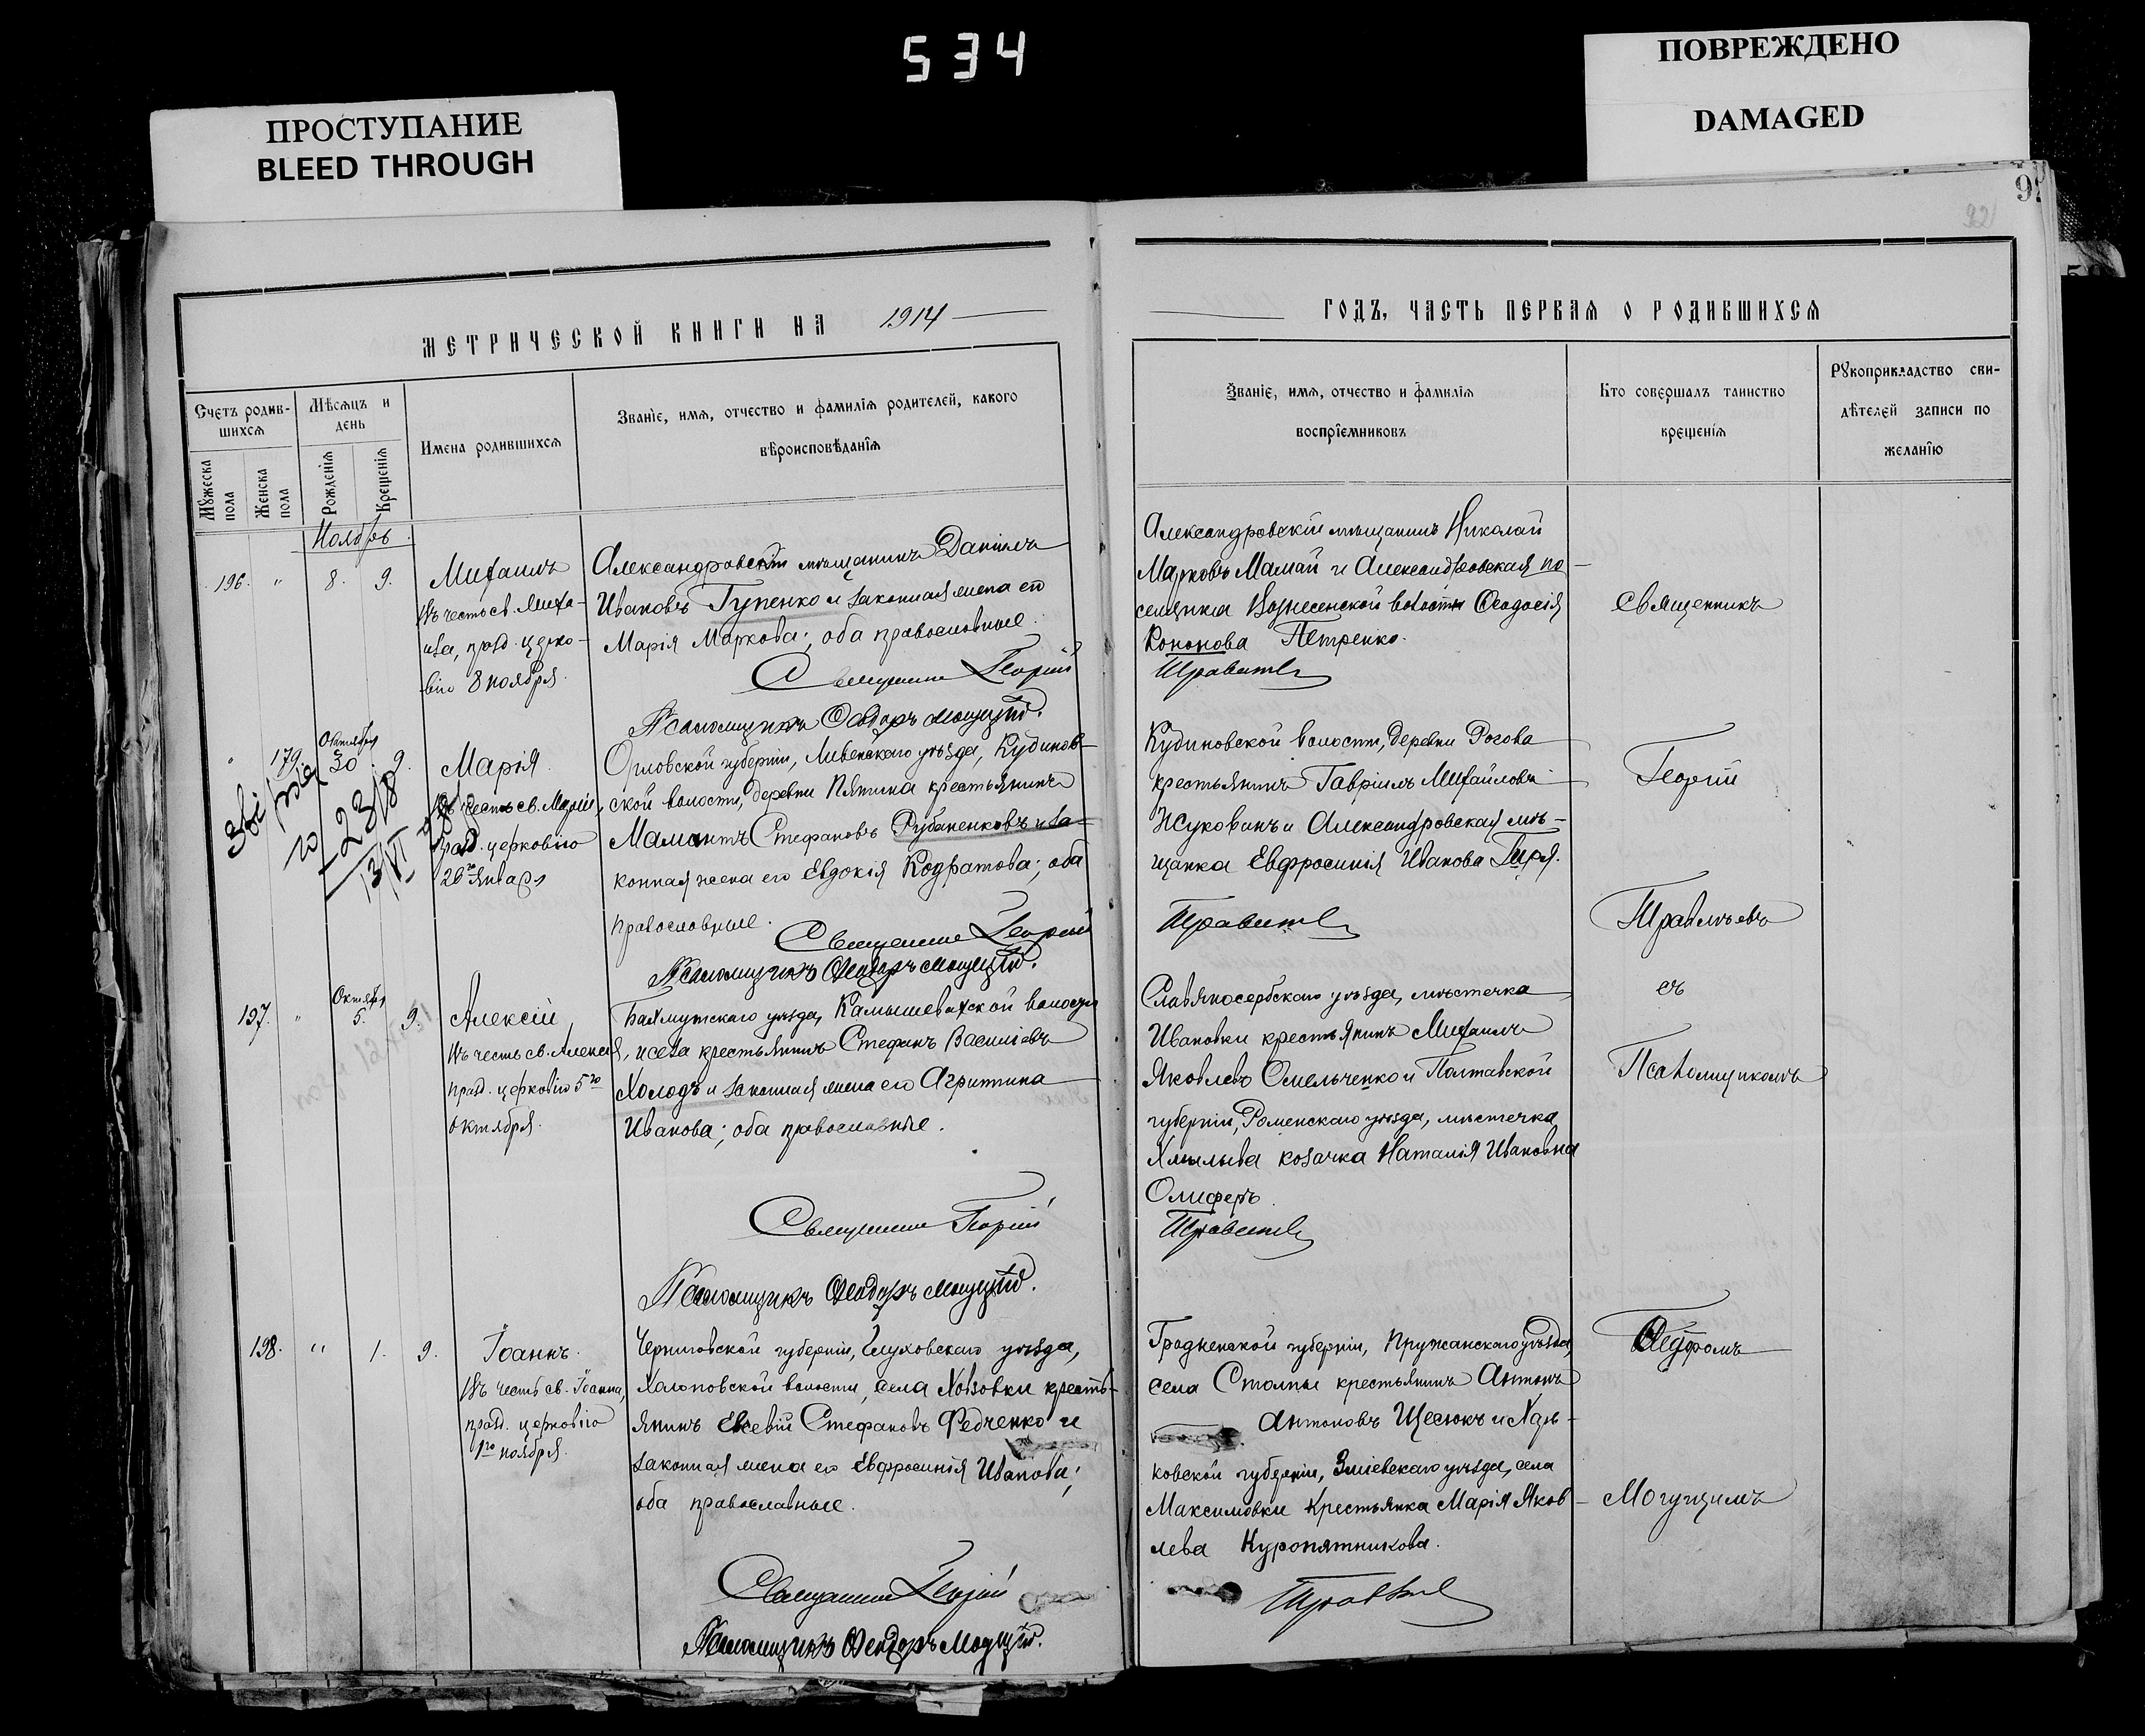 534
ПРОСТУПАНИЕ
BLEED THROUGH
ПОВРЕЖДЕНО
DAMAGED
92
МЕТРИЧЕСКОЙ КНИГИ НА 1914
Счетъ родив-
шихся
Мѣсяцъ и
день
Имена родившихся
Званіе, имя, отчество и фамилія родителей, какого
вѣроисповѣданія
Мужеска пола
Женска пола
Рожденія
Крещенія
Ноябрь.
196. " 8. 9.
Михаилъ
Въ честь св. Миха-
ила, празд. церко-
вію 8 ноября.
Александровскій мѣщанинъ Даніилъ
Ивановъ Гупенко и законная жена его
Марія Маркова; оба православные.
Священникъ Георгій
Псаломщикъ Ѳеодоръ Могущій.
" 179. Октября 30. 9.
Марія
Въ честь св. Маріи,
празд. церковію
26го января
Орловской губерніи, Ливенскаго уѣзда, Кудинов-
ской волости, деревни Пятина крестьянинъ
Мамантъ Стефановъ Рубаненковъ и за-
конная жена его Евдокія Кодратова; оба
православные.
Священникъ Георгій
Псаломщикъ Ѳеодоръ Могущій.
197. " Октября 5. 9.
Алексій
Въ честь св. Алексія,
празд. церковію 5го
октября.
Бахмутскаго уѣзда, Камышевахской волости
и села крестьянинъ Стефанъ Василіевъ
Холодъ и законная жена его Агриппина
Иванова; оба православные.
Священникъ Георгій
Псаломщикъ Ѳеодоръ Могущій.
198. " 1. 9.
Іоаннъ.
Въ честь св. Іоанна,
празд. церковію
1го ноября.
Черниговской губерніи, Глуховскаго уѣзда,
Холоповской волости, села Ховзовки кресть-
янинъ Евсевій Стефановъ Федченко и
законная жена его Евфросинія Иванова;
оба православные.
Священникъ Георгій
Псаломщикъ Ѳеодоръ Могущій.
ГОДЪ, ЧАСТЬ ПЕРВАЯ О РОДИВШИХСЯ
Званіе, имя, отчество и фамилія
воспріемниковъ
Кто совершалъ таинство
крещенія
Рукоприкладство сви-
дѣтелей записи по
желанію
Александровскій мѣщанинъ Николай
Марковъ Мамай и Александровская по-
селянка Вознесенской волости Ѳеодосія
Кононова Петренко.
Кудиновской волости, деревни Рогова
крестьянинъ Гавріилъ Михайловъ
Жуковинъ и Александровская мѣ-
щанка Евфросинія Иванова Гиря.
Славяносербскаго уѣзда, мѣстечка
Ивановки крестьянинъ Михаилъ
Яковлевъ Омельченко и Полтавской
губерніи, Роменскаго уѣзда, мѣстечка
Хмылыва козачка Наталія Ивановна
Олиферъ.
Гродненской губерніи, Пружанскаго уѣзда,
села Столпы крестьянинъ Антонъ
Антоновъ Щесюкъ и Харь-
ковской губерніи, Зміевскаго уѣзда, села
Максимовки крестьянка Марія Яков-
лева Куропятникова.
Священникъ
Георгій
съ
Псаломщикомъ
Ѳеодоромъ
Могущимъ